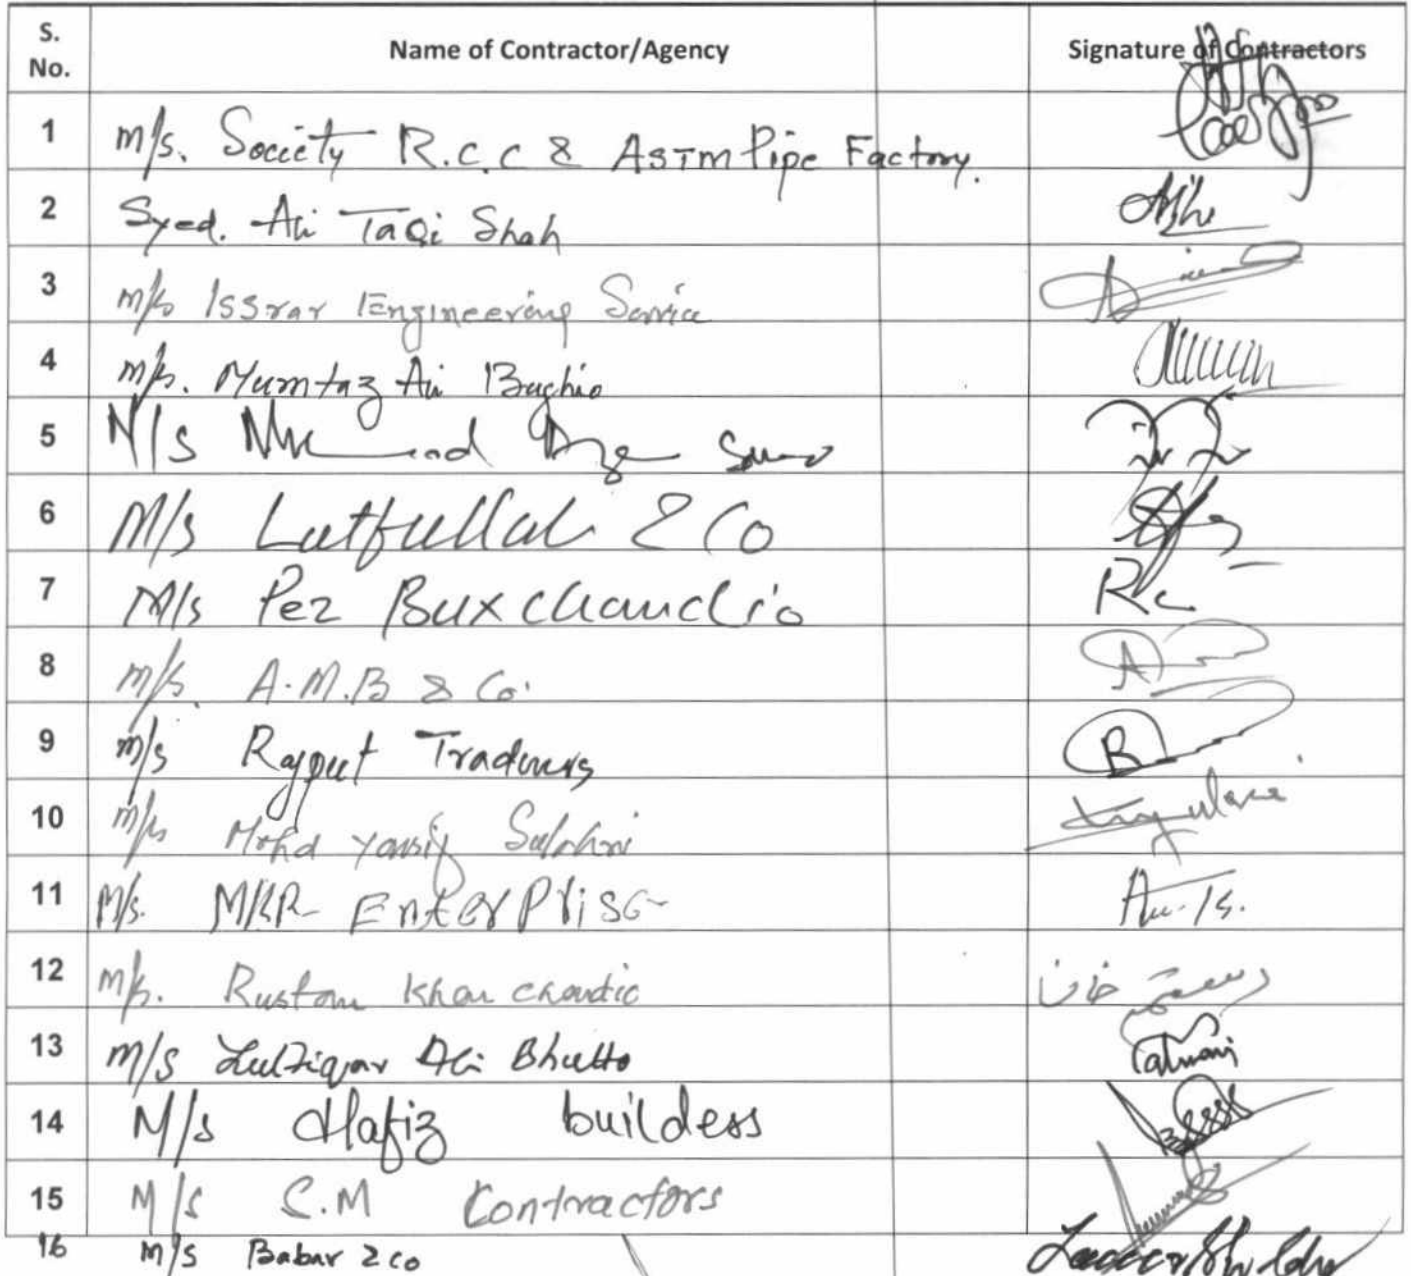 S. No. Name of Contractor/Agency Signature of Contractors
1 M/s. Society R.C.C & ASTM Pipe Factory.
2 Syed. Ali Taqi Shah
3 M/s Issrar Engineering Service
4 M/s. Mumtaz Ali Bughio
5 M/s
6 M/s Lutfullah & Co
7 M/s Pez Bux chandio
8 M/s. A.M.B & Co.
9 M/s Rajput Traders
10 M/s Mohd Yousif
11 M/s. MKR Enterprise
12 M/s. Rustam Khan chandio رستم خان
13 M/s Zulfiqar Ali Bhutto
14 M/s Hafiz buildess
15 M/s S.M Contractors
16 M/s Babar & co